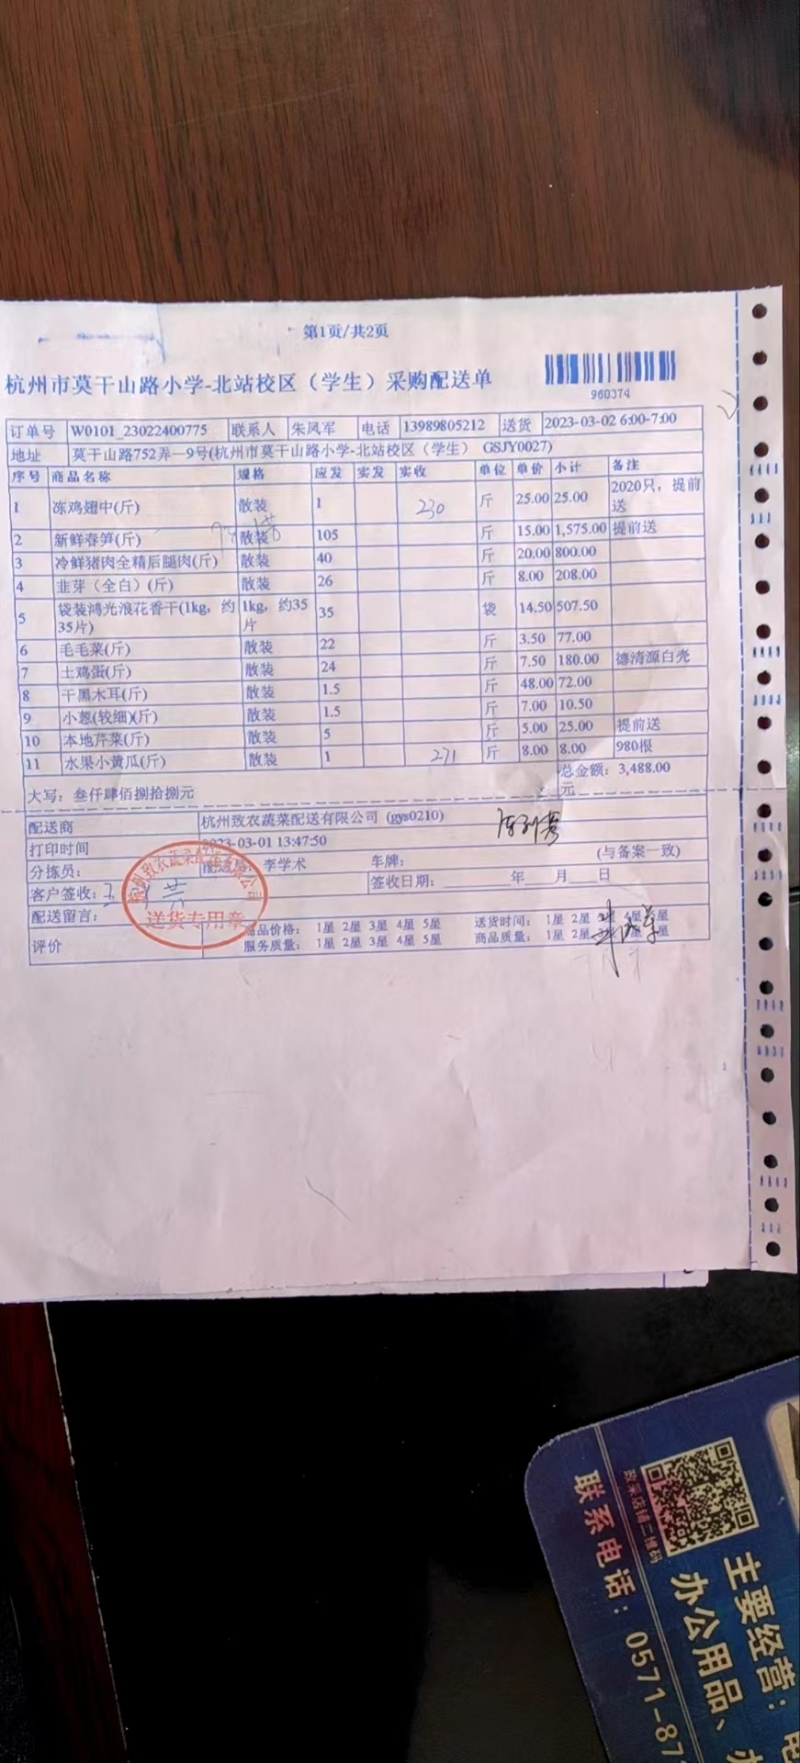 第1页/共2页
杭州市莫干山路小学-北站校区（学生）采购配送单
960374
订单号 W0101_23022400775 联系人 朱凤军 电话 13989805212 送货 2023-03-02 6:00-7:00
地址 莫干山路752弄一9号(杭州市莫干山路小学-北站校区（学生） GSJY0027)
序号 商品名称 规格 应发 实发 实收 单位 单价 小计 备注
1 冻鸡翅中(斤) 散装 1 230 斤 25.00 25.00 2020只，提前送
2 新鲜春笋(斤) 散装 105 斤 15.00 1,575.00 提前送
3 冷鲜猪肉全精后腿肉(斤) 散装 40 斤 20.00 800.00
4 韭芽（全白）(斤) 散装 26 斤 8.00 208.00
5 袋装鸿光浪花香干(1kg，约35片) 1kg，约35片 35 袋 14.50 507.50
6 毛毛菜(斤) 散装 22 斤 3.50 77.00
7 土鸡蛋(斤) 散装 24 斤 7.50 180.00 德清源白壳
8 干黑木耳(斤) 散装 1.5 斤 48.00 72.00
9 小葱(较细)(斤) 散装 1.5 斤 7.00 10.50
10 本地芹菜(斤) 散装 5 斤 5.00 25.00 提前送
11 水果小黄瓜(斤) 散装 1 271 斤 8.00 8.00 980根
大写：叁仟肆佰捌拾捌元 总金额：3,488.00元
配送商 杭州致农蔬菜配送有限公司 (gys0210)
打印时间 2023-03-01 13:47:50
分拣员： 配送员： 李学术 车牌： (与备案一致)
客户签收： 签收日期：____年__月__日
配送留言：
送货专用章
评价 商品价格： 1星 2星 3星 4星 5星 送货时间： 1星 2星 4星 5星
服务质量： 1星 2星 3星 4星 5星 商品质量： 1星 2星
政采店铺二维码
联系电话：0571-87
主要经营：
办公用品、